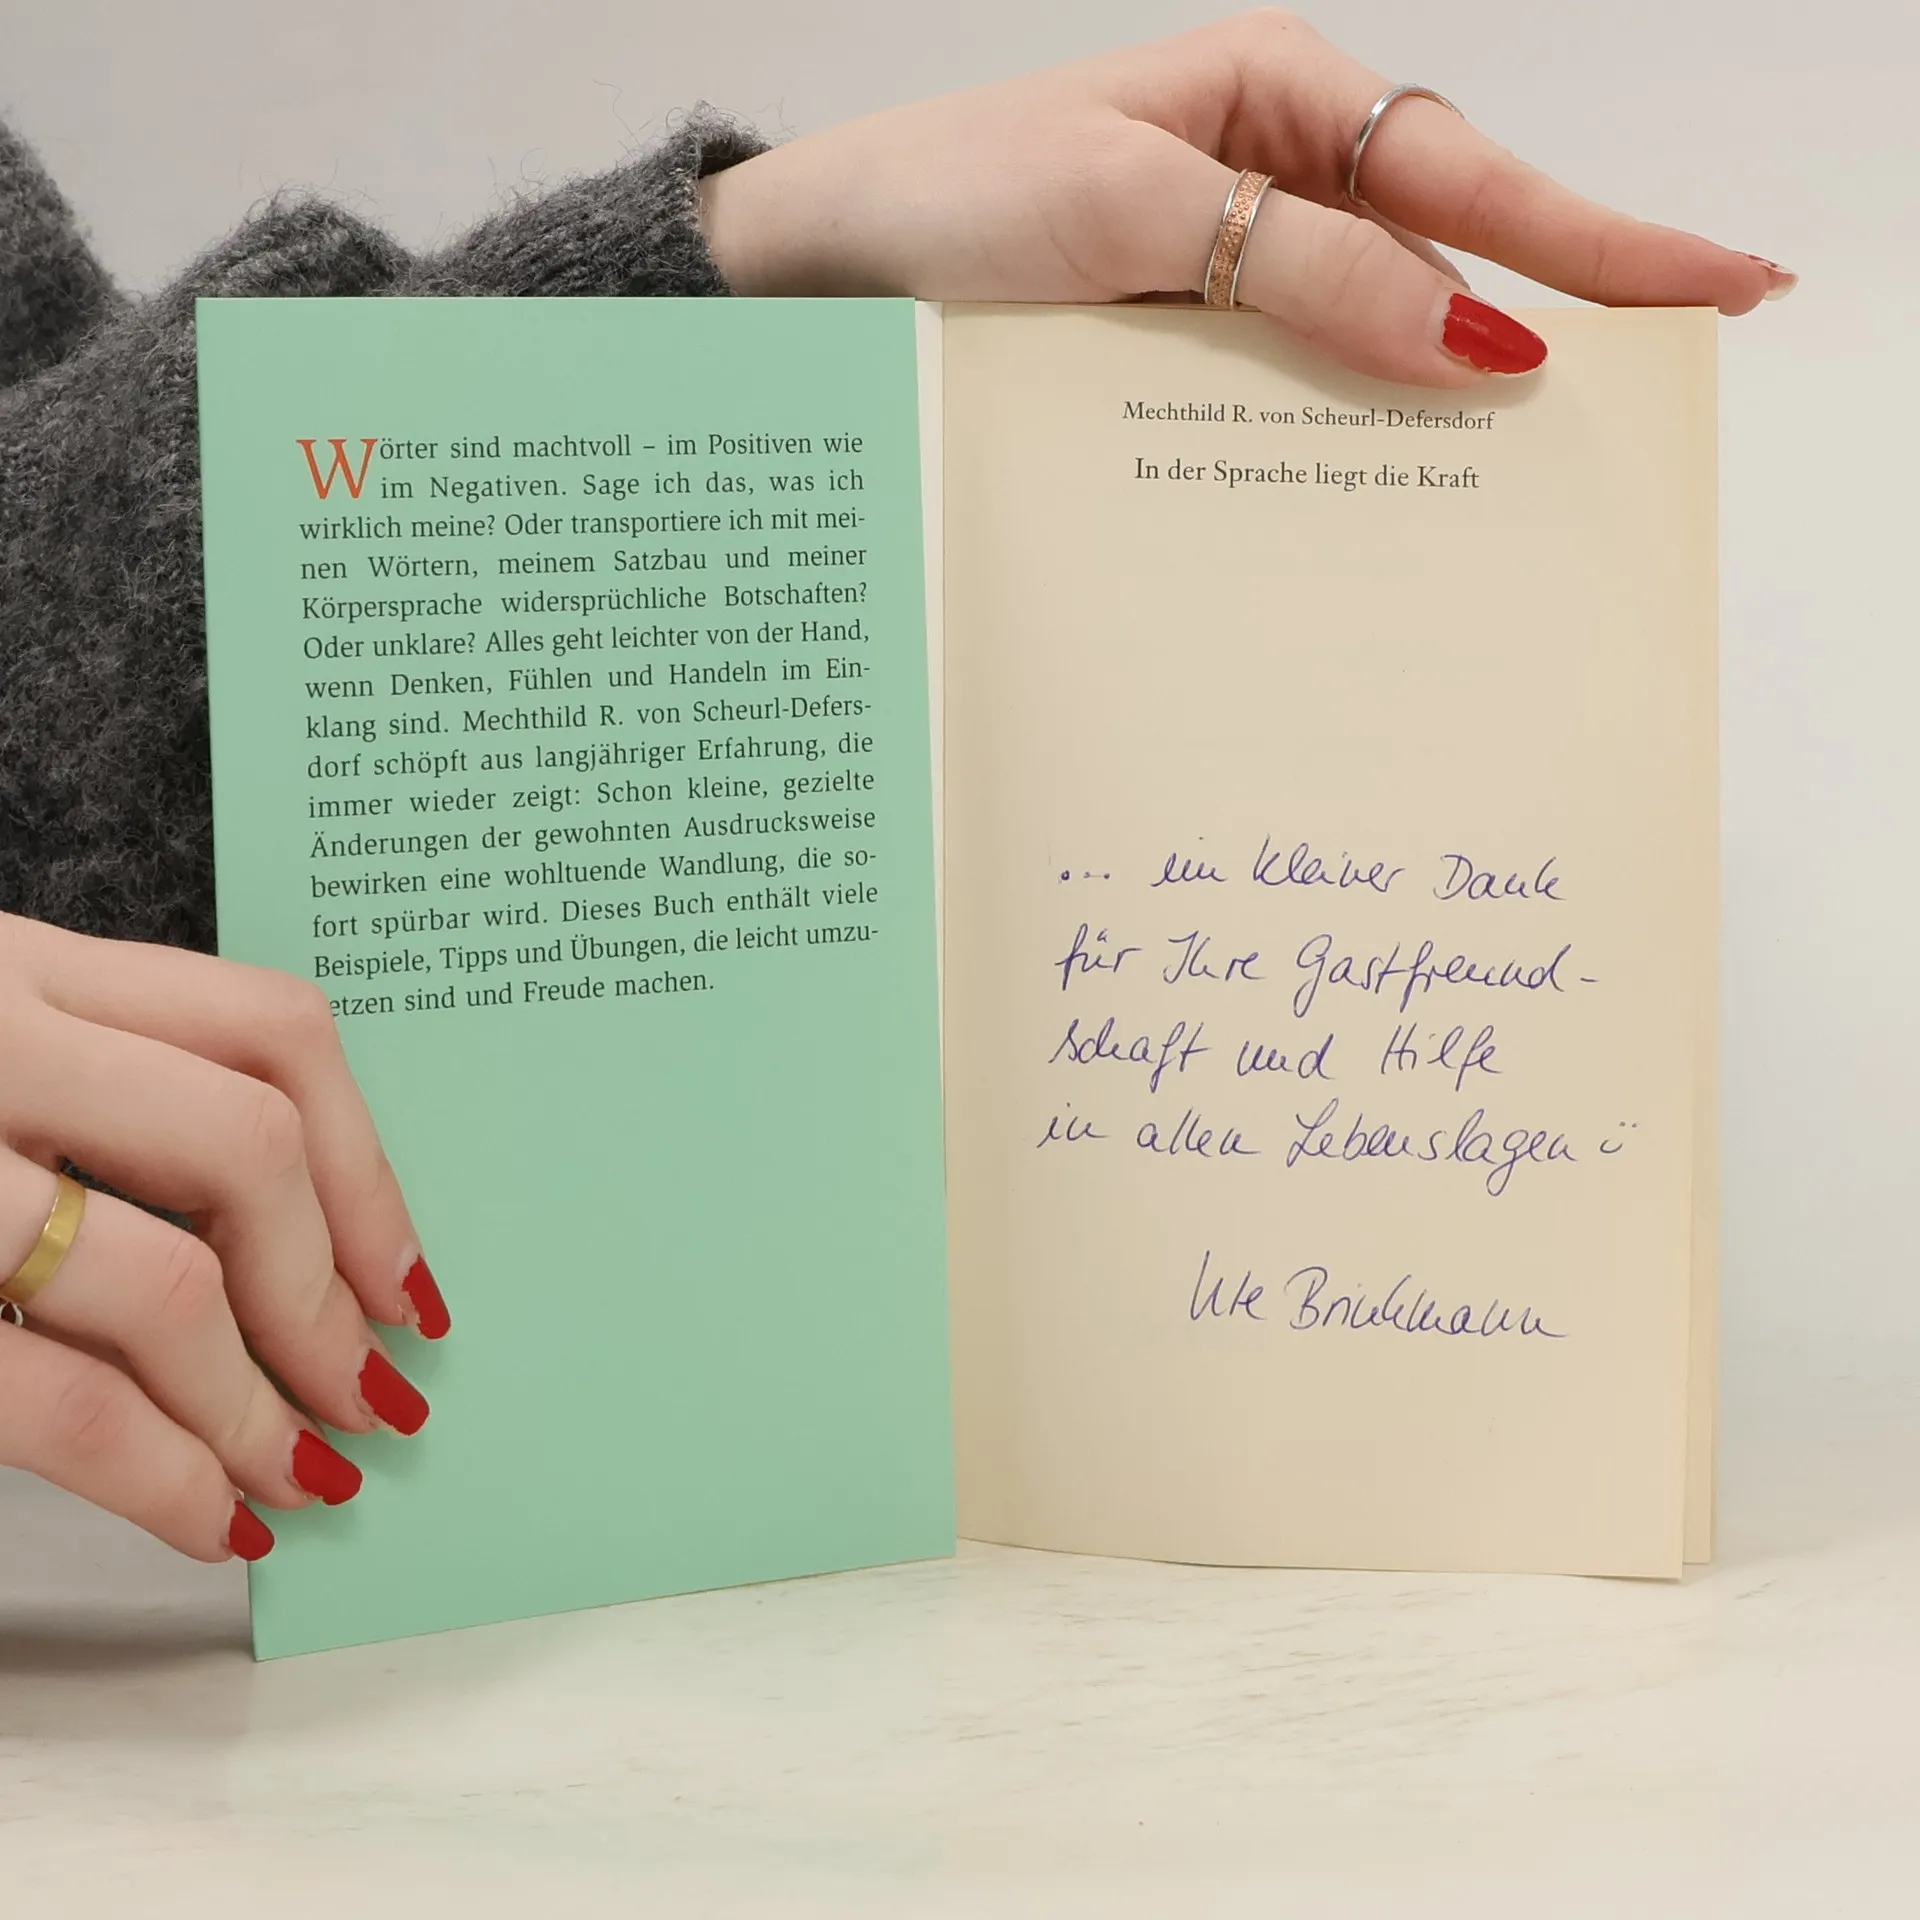 Wörter sind machtvoll – im Positiven wie
im Negativen. Sage ich das, was ich
wirklich meine? Oder transportiere ich mit mei-
nen Wörtern, meinem Satzbau und meiner
Körpersprache widersprüchliche Botschaften?
Oder unklare? Alles geht leichter von der Hand,
wenn Denken, Fühlen und Handeln im Ein-
klang sind. Mechthild R. von Scheurl-Defers-
dorf schöpft aus langjähriger Erfahrung, die
immer wieder zeigt: Schon kleine, gezielte
Änderungen der gewohnten Ausdrucksweise
bewirken eine wohltuende Wandlung, die so-
fort spürbar wird. Dieses Buch enthält viele
Beispiele, Tipps und Übungen, die leicht umzu-
etzen sind und Freude machen.
Mechthild R. von Scheurl-Defersdorf
In der Sprache liegt die Kraft
... ein kleiner Dank
für Ihre Gastfreund-
schaft und Hilfe
in allen Lebenslagen ü
Ute Brinkmann